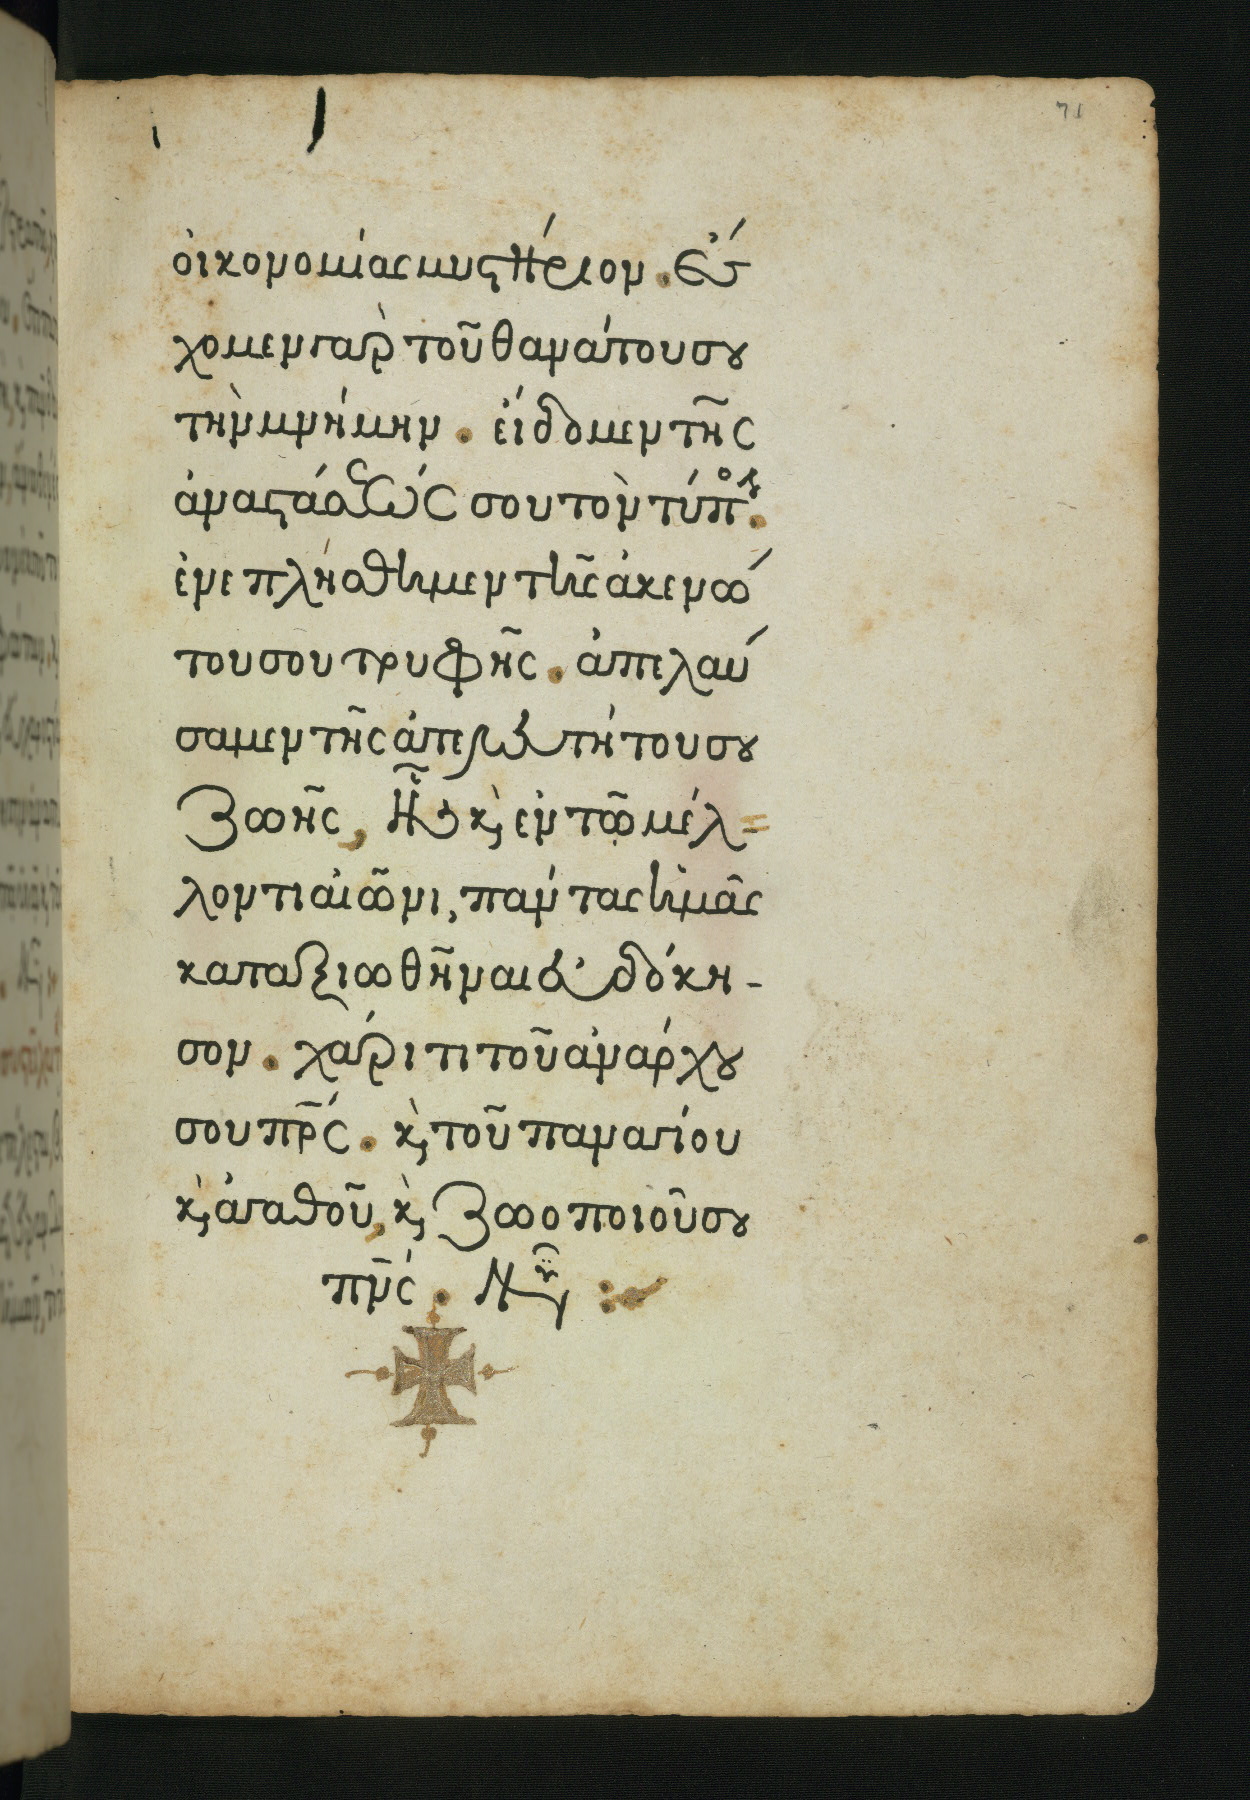 71
οἰκονομίας μυστήριον. ἔ
χομεν γὰρ τοῦ θανάτου σου
τὴν μνήμην. εἴδομεν τῆς
ἀναστάσεώς σου τὸν τύπον.
ἐνεπλήσθημεν τῆς ἀκενώ
του σου τρυφῆς. ἀπελαύ
σαμεν τῆς ἀτελευτήτου σου
ζωῆς, ἧς κ, ἐν τῷ μέλ=
λοντι αἰῶνι, πάντας ἡμᾶς
καταξιωθῆναι εὐδόκη-
σον. χάριτι τοῦ ἀνάρχου
σου πρς. κ, τοῦ παναγίου
κ, ἀγαθοῦ, κ, ζωοποιοῦ σου
πνς.